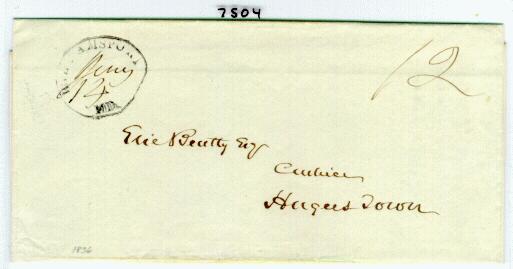 7504
WILLIAMSPORT
Aug
14
MD.
12
Elie Beatty Esq
Cashier
Hagers Town
1836